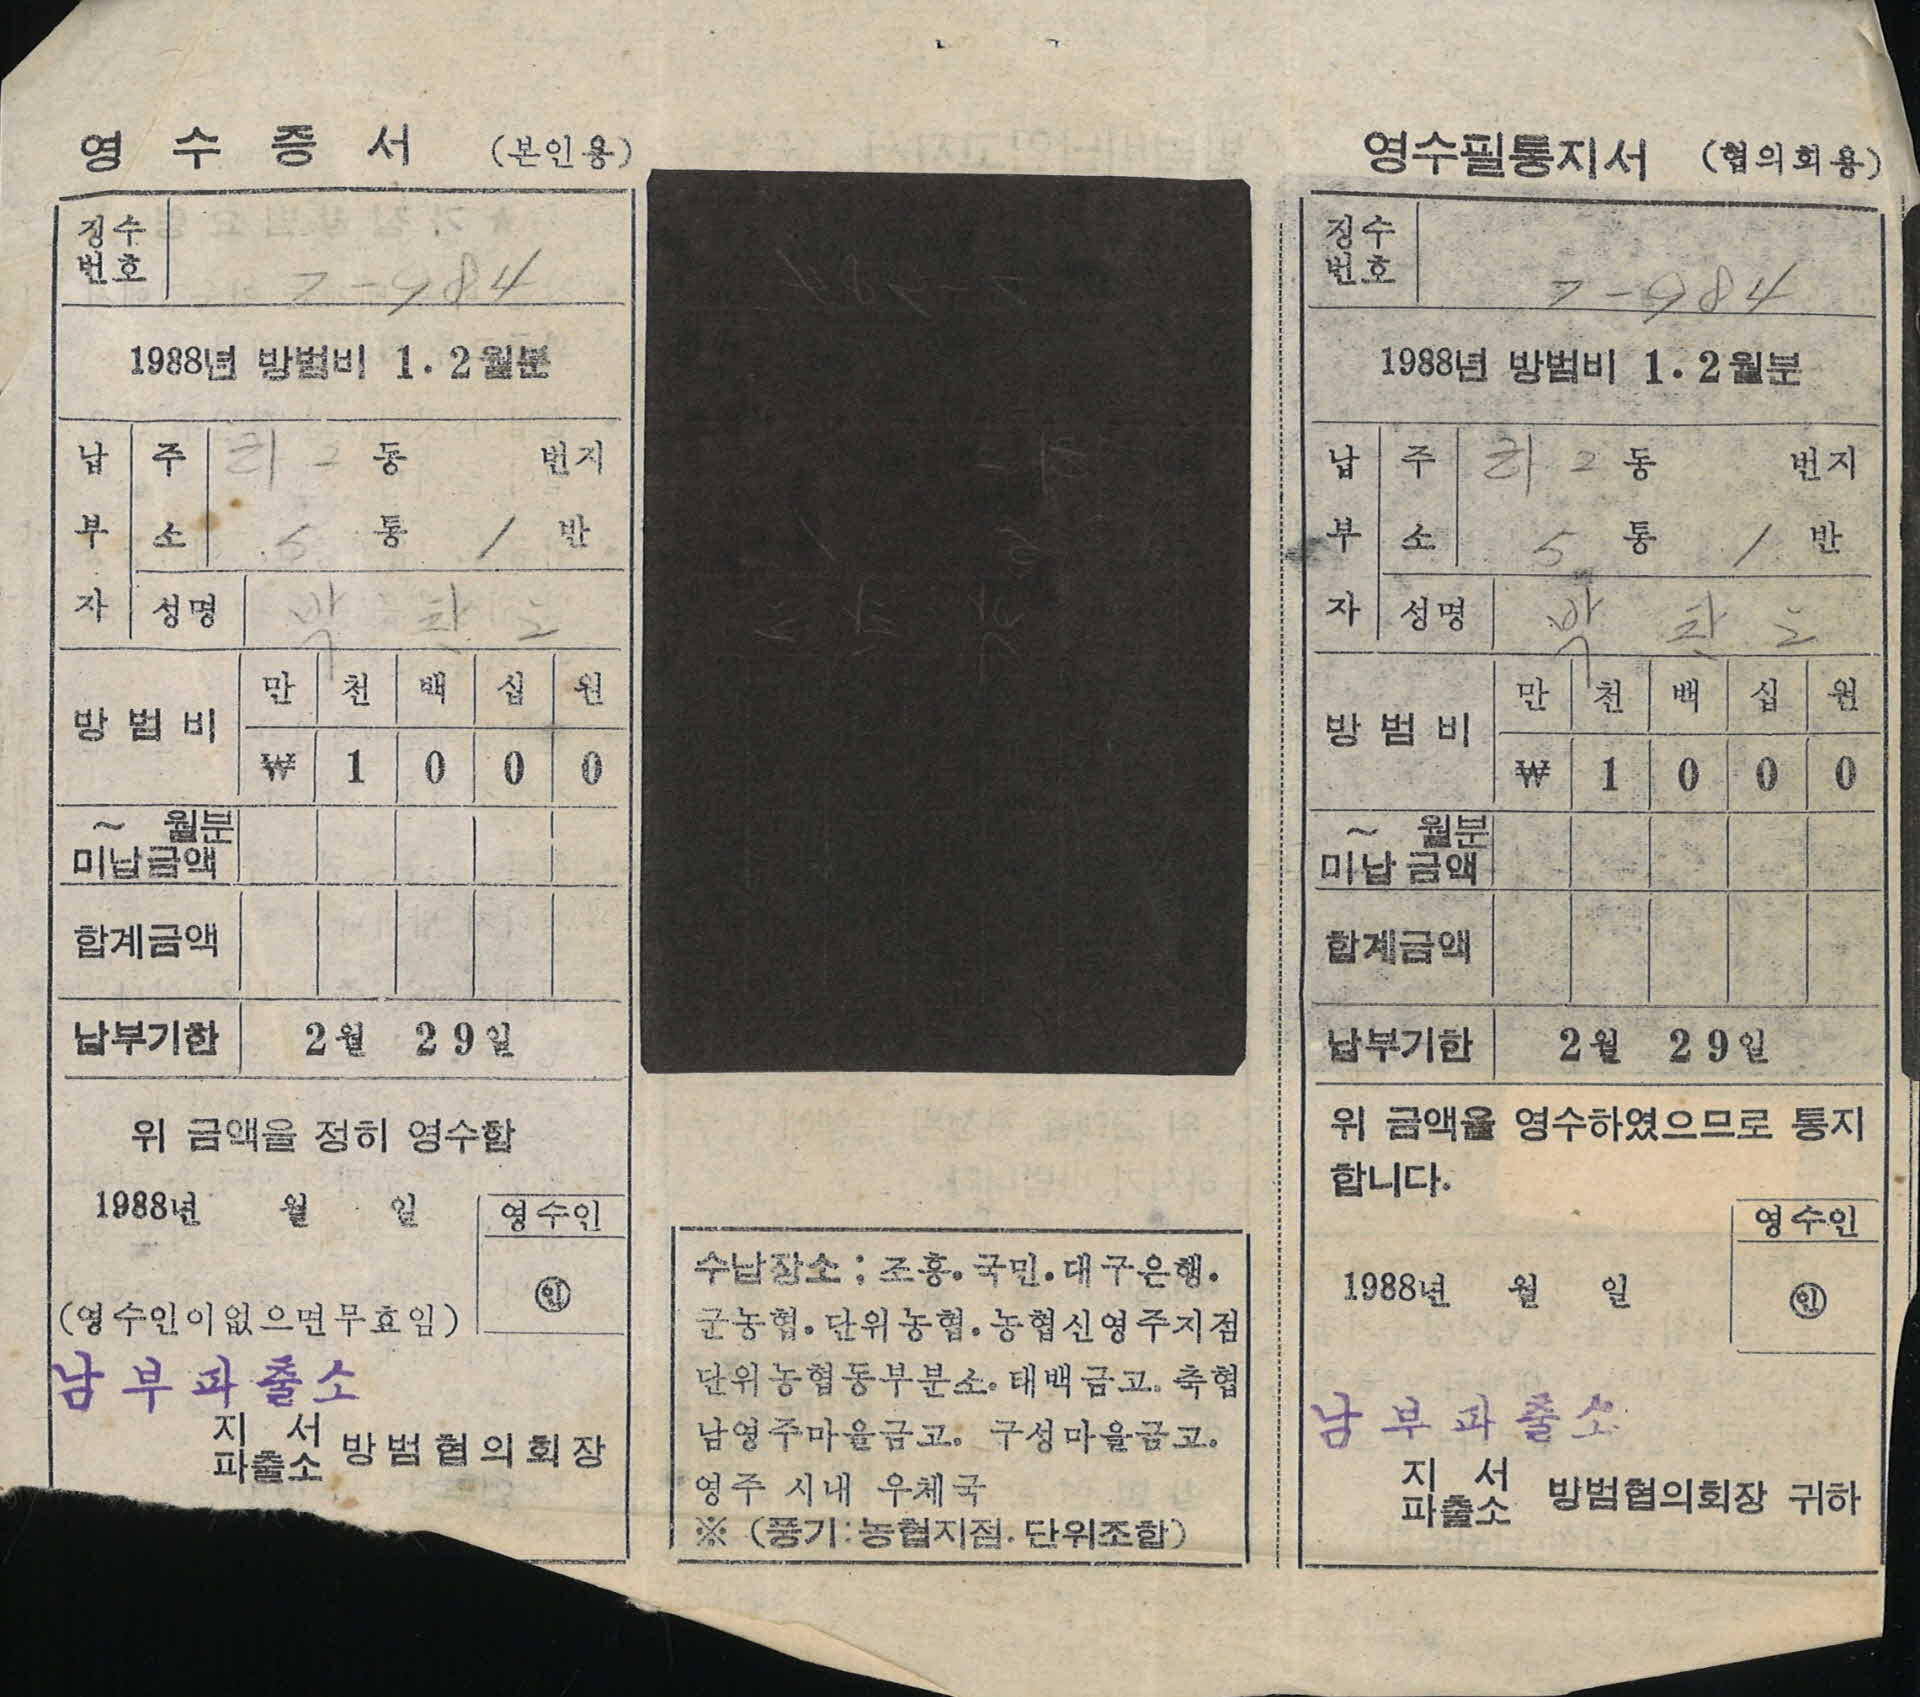 영수증서 (본인용)
징수
번호
2-684
1988년 방범비 1.2월분
납부자
주소
휘2동 번지
5통 1반
성명
방범비
만 천 백 십 원
₩ 1 0 0 0
~ 월분
미납금액
합계금액
납부기한 2월 29일
위 금액을 정히 영수함
1988년 월 일
영수인
㊞
(영수인이없으면무효임)
남부파출소
지서
파출소 방범협의회장
수납장소 : 조흥.국민.대구은행.
군농협.단위농협.농협신영주지점
단위농협동부분소.태백금고.축협
남영주마을금고. 구성마을금고.
영주 시내 우체국
※ (풍기:농협지점.단위조합)
영수필통지서 (협의회용)
징수
번호
2-684
1988년 방범비 1.2월분
납부자
주소
휘2동 번지
5통 1반
성명
방범비
만 천 백 십 원
₩ 1 0 0 0
~ 월분
미납금액
합계금액
납부기한 2월 29일
위 금액을 영수하였으므로 통지
합니다.
영수인
㊞
1988년 월 일
남부파출소
지서
파출소 방범협의회장 귀하